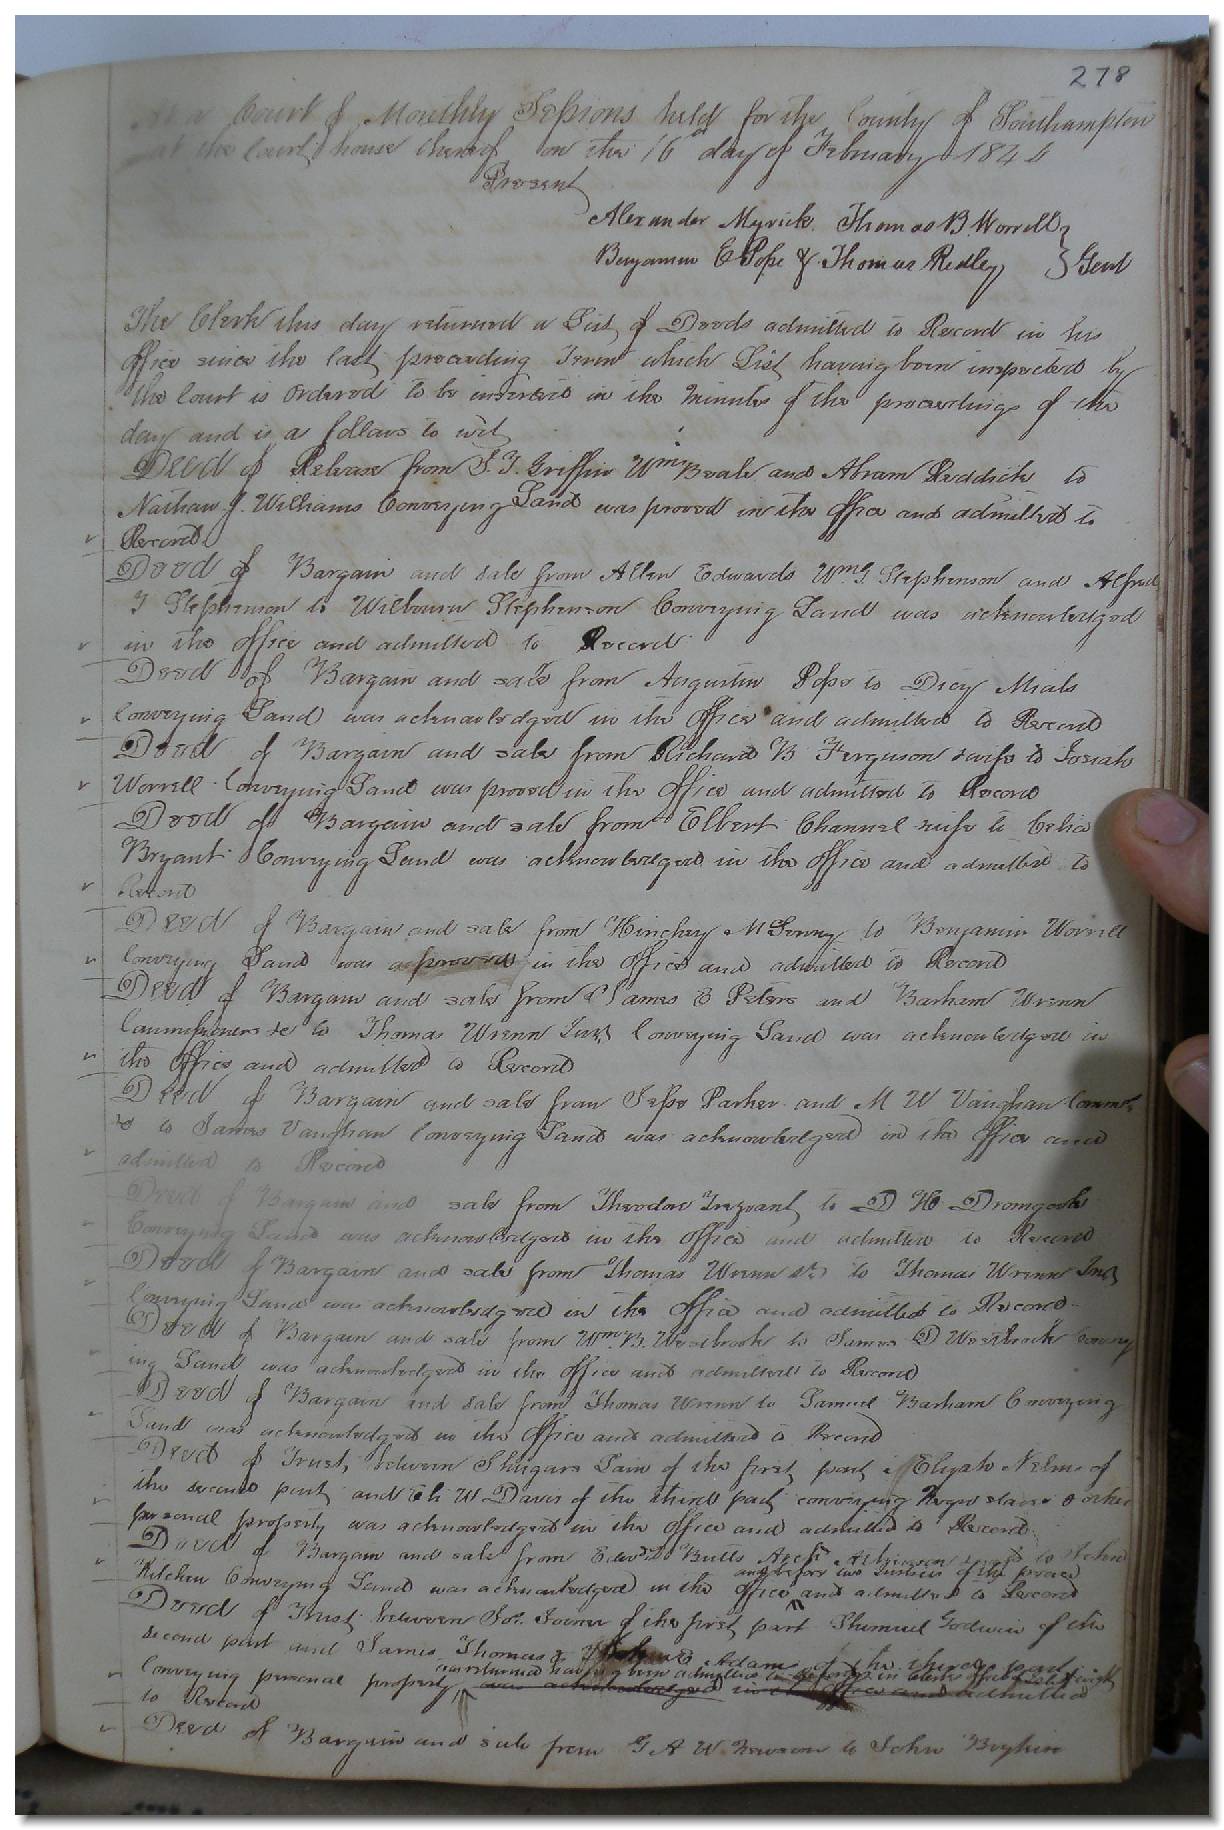 278
At a Court of Monthly Sessions held for the County of Southampton
at the Court house thereof on the 16th day of February 1844
Present
Alexander Myrick Thomas B. Worrell
Benjamin E Pope & Thomas Ridley } Gent
The Clerk this day returned a List of Deeds admitted to Record in his
office since the last preceeding Term which List having been inspected by
the Court is ordered to be inserted in the minutes of the proceedings of the
day and is as follows to wit
Deed of Release from Griffin Wm Beale and Abram Reddick to
Nathan J. Williams Conveying Land was proved in the office and admitted to
Record
Deed of Bargain and sale from Allen Edwards Wm G Stephenson and Alfred
J Stephenson to Wilbourn Stephenson Conveying Land was acknowledged
in the office and admitted to Record
Deed of Bargain and sale from Augustin Pope to Dicy Mials
Conveying Land was acknowledged in the office and admitted to Record
Deed of Bargain and sale from Richard B Ferguson & wife to Josiah
Worrell Conveying Land was proved in the office and admitted to Record
Deed of Bargain and sale from Elbert Channel & wife to Celia
Bryant Conveying Land was acknowledged in the office and admitted to
Record
Deed of Bargain and sale from Hinchey to Benjamin Worrell
Conveying Land was proved in the office and admitted to Record
Deed of Bargain and sale from James E Peters and Barham Wrenn
Commissioners &c to Thomas Wrenn Junr Conveying Land was acknowledged in
the office and admitted to Record
Deed of Bargain and sale from Jesse Parker and M W Vaughan Commrs
&c to James Vaughan Conveying Land was acknowledged in the office and
admitted to Record
Deed of Bargain and sale from Theodore Trezvant to D H Dromgoole
Conveying Land was acknowledged in the office and admitted to Record
Deed of Bargain and sale from Thomas Wrenn Sr to Thomas Wrenn Junr
Conveying Land was acknowledged in the office and admitted to Record
Deed of Bargain and sale from Wm B. Westbrook to James D Westbrook Convey
ing Land was acknowledged in the office and admitted to Record
Deed of Bargain and sale from Thomas Wrenn to Samuel Barham Conveying
Land was acknowledged in the office and admitted to Record
Deed of Trust between Shugars Lain of the first part Elijah Nelms of
the second part and Eli W Davis of the third part conveying Negro slaves & other
personal property was acknowledged in the office and admitted to Record
Deed of Bargain and sale from Edwd D Butts Atkinson to John
and before two Justices of the peace
Kitchen Conveying Land was acknowledged in the office and admitted to Record
Deed of Trust between Jos. Joiner of the first part Shemuel Godwin of the
second part and James Thomas & Adam of the third part
was returned having been admitted to record in
Conveying personal property was acknowledged in the office and admitted
to Record
Deed of Bargain and sale from G A W Newsom to John Boykin